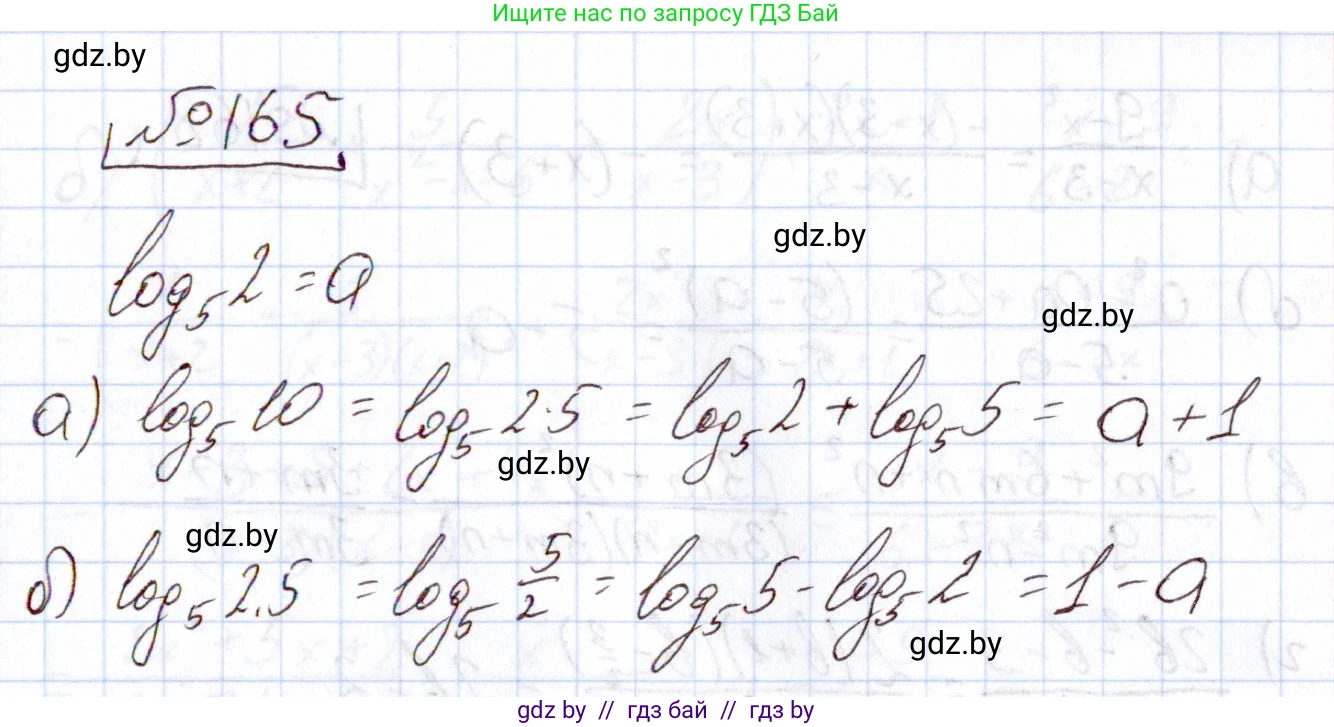 Ищите нас по запросу ГДЗ Бай
gdz.by
№165
gdz.by
log₅2 = a
gdz.by
а) log₅10 = log₅2·5 = log₅2 + log₅5 = a + 1
gdz.by
gdz.by
б) log₅2.5 = log₅5/2 = log₅5 - log₅2 = 1 - a
gdz.by
gdz by // гдз бай // гдз by